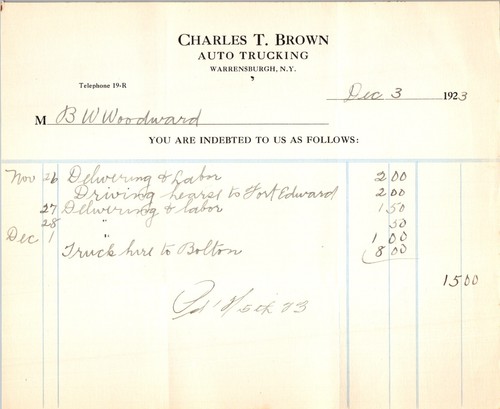 CHARLES T. BROWN
AUTO TRUCKING
WARRENSBURGH, N.Y.
Telephone 19-R
Dec 3 1923
M B W Woodward
YOU ARE INDEBTED TO US AS FOLLOWS:
Nov 26 Delivering & Labor 2 00
Driving hearse to Fort Edward 2 00
27 Delivering & labor 1 50
28 " 50
Dec 1 " 1 00
Truck hire to Bolton 8 00
15 00
Pd 23